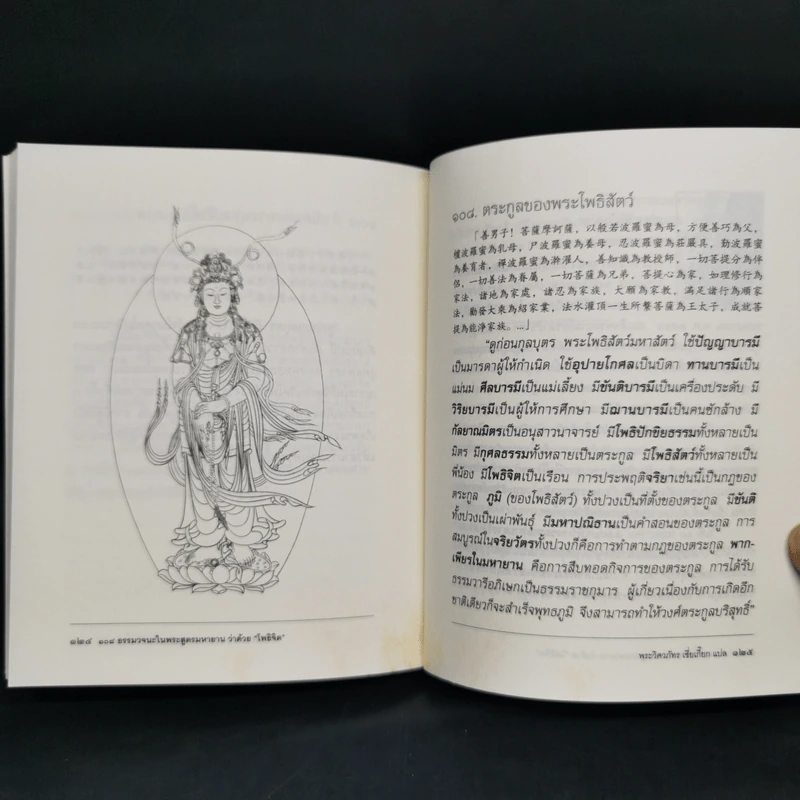 ๑๒๔ ๑๐๘ ธรรมวจนะในพระสูตรมหายาน ว่าด้วย "โพธิจิต"
๑๐๘. ตระกูลของพระโพธิสัตว์
「善男子！菩薩摩訶薩，以般若波羅蜜為母，方便善巧為父，
檀波羅蜜為乳母，尸波羅蜜為養母，忍波羅蜜為莊嚴具，勤波羅蜜
為養育者，禪波羅蜜為澣濯人，善知識為教授師，一切菩提分為伴
侶，一切善法為眷屬，一切菩薩為兄弟，菩提心為家，如理修行為
家法，諸地為家處，諸忍為家族，大願為家教，滿足諸行為順家
法，勸發大乘為紹家業，法水灌頂一生所繫菩薩為王太子，成就菩
提為能淨家族。...」
"ดูก่อนกุลบุตร พระโพธิสัตว์มหาสัตว์ ใช้ปัญญาบารมี
เป็นมารดาผู้ให้กำเนิด ใช้อุปายโกศลเป็นบิดา ทานบารมีเป็น
แม่นม ศีลบารมีเป็นแม่เลี้ยง มีขันติบารมีเป็นเครื่องประดับ มี
วิริยบารมีเป็นผู้ให้การศึกษา มีฌานบารมีเป็นคนซักล้าง มี
กัลยาณมิตรเป็นอนุสาวนาจารย์ มีโพธิปักขิยธรรมทั้งหลายเป็น
มิตร มีกุศลธรรมทั้งหลายเป็นตระกูล มีโพธิสัตว์ทั้งหลายเป็น
พี่น้อง มีโพธิจิตเป็นเรือน การประพฤติจริยาเช่นนี้เป็นกฎของ
ตระกูล ภูมิ (ของโพธิสัตว์) ทั้งปวงเป็นที่ตั้งของตระกูล มีขันติ
ทั้งปวงเป็นเผ่าพันธุ์ มีมหาปณิธานเป็นคำสอนของตระกูล การ
สมบูรณ์ในจริยวัตรทั้งปวงก็คือการทำตามกฎของตระกูล พาก-
เพียรในมหายาน คือการสืบทอดกิจการของตระกูล การได้รับ
ธรรมวารีอภิเษกเป็นธรรมราชกุมาร ผู้เกี่ยวเนื่องกับการเกิดอีก
ชาติเดียวก็จะสำเร็จพุทธภูมิ จึงสามารถทำให้วงศ์ตระกูลบริสุทธิ์"
พระวิศวภัทร เซี่ยเกี๊ยก แปล ๑๒๕